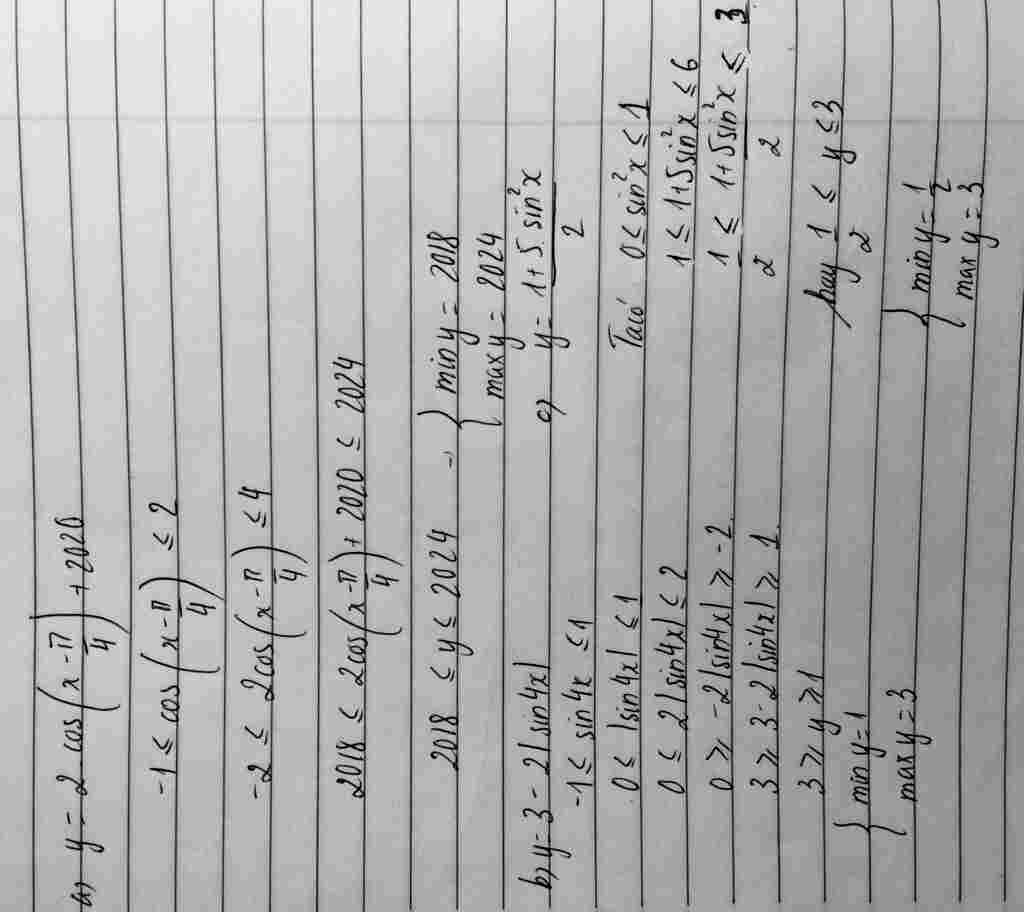 a) y = 2 cos(x - π/4) + 2020
-1 ≤ cos(x - π/4) ≤ 2
-2 ≤ 2cos(x - π/4) ≤ 4
2018 ≤ 2cos(x - π/4) + 2020 ≤ 2024
2018 ≤ y ≤ 2024 → { min y = 2018
max y = 2024
b) y = 3 - 2|sin4x|
-1 ≤ sin4x ≤ 1
0 ≤ |sin4x| ≤ 1
0 ≤ 2|sin4x| ≤ 2
0 ≥ -2|sin4x| ≥ -2
3 ≥ 3-2|sin4x| ≥ 1
3 ≥ y ≥ 1
{ min y = 1
max y = 3
c) y = (1+5 sin²x)/2
Ta có 0 ≤ sin²x ≤ 1
1 ≤ 1+5sin²x ≤ 6
1/2 ≤ (1+5sin²x)/2 ≤ 3
hay 1/2 ≤ y ≤ 3
{ min y = 1/2
max y = 3